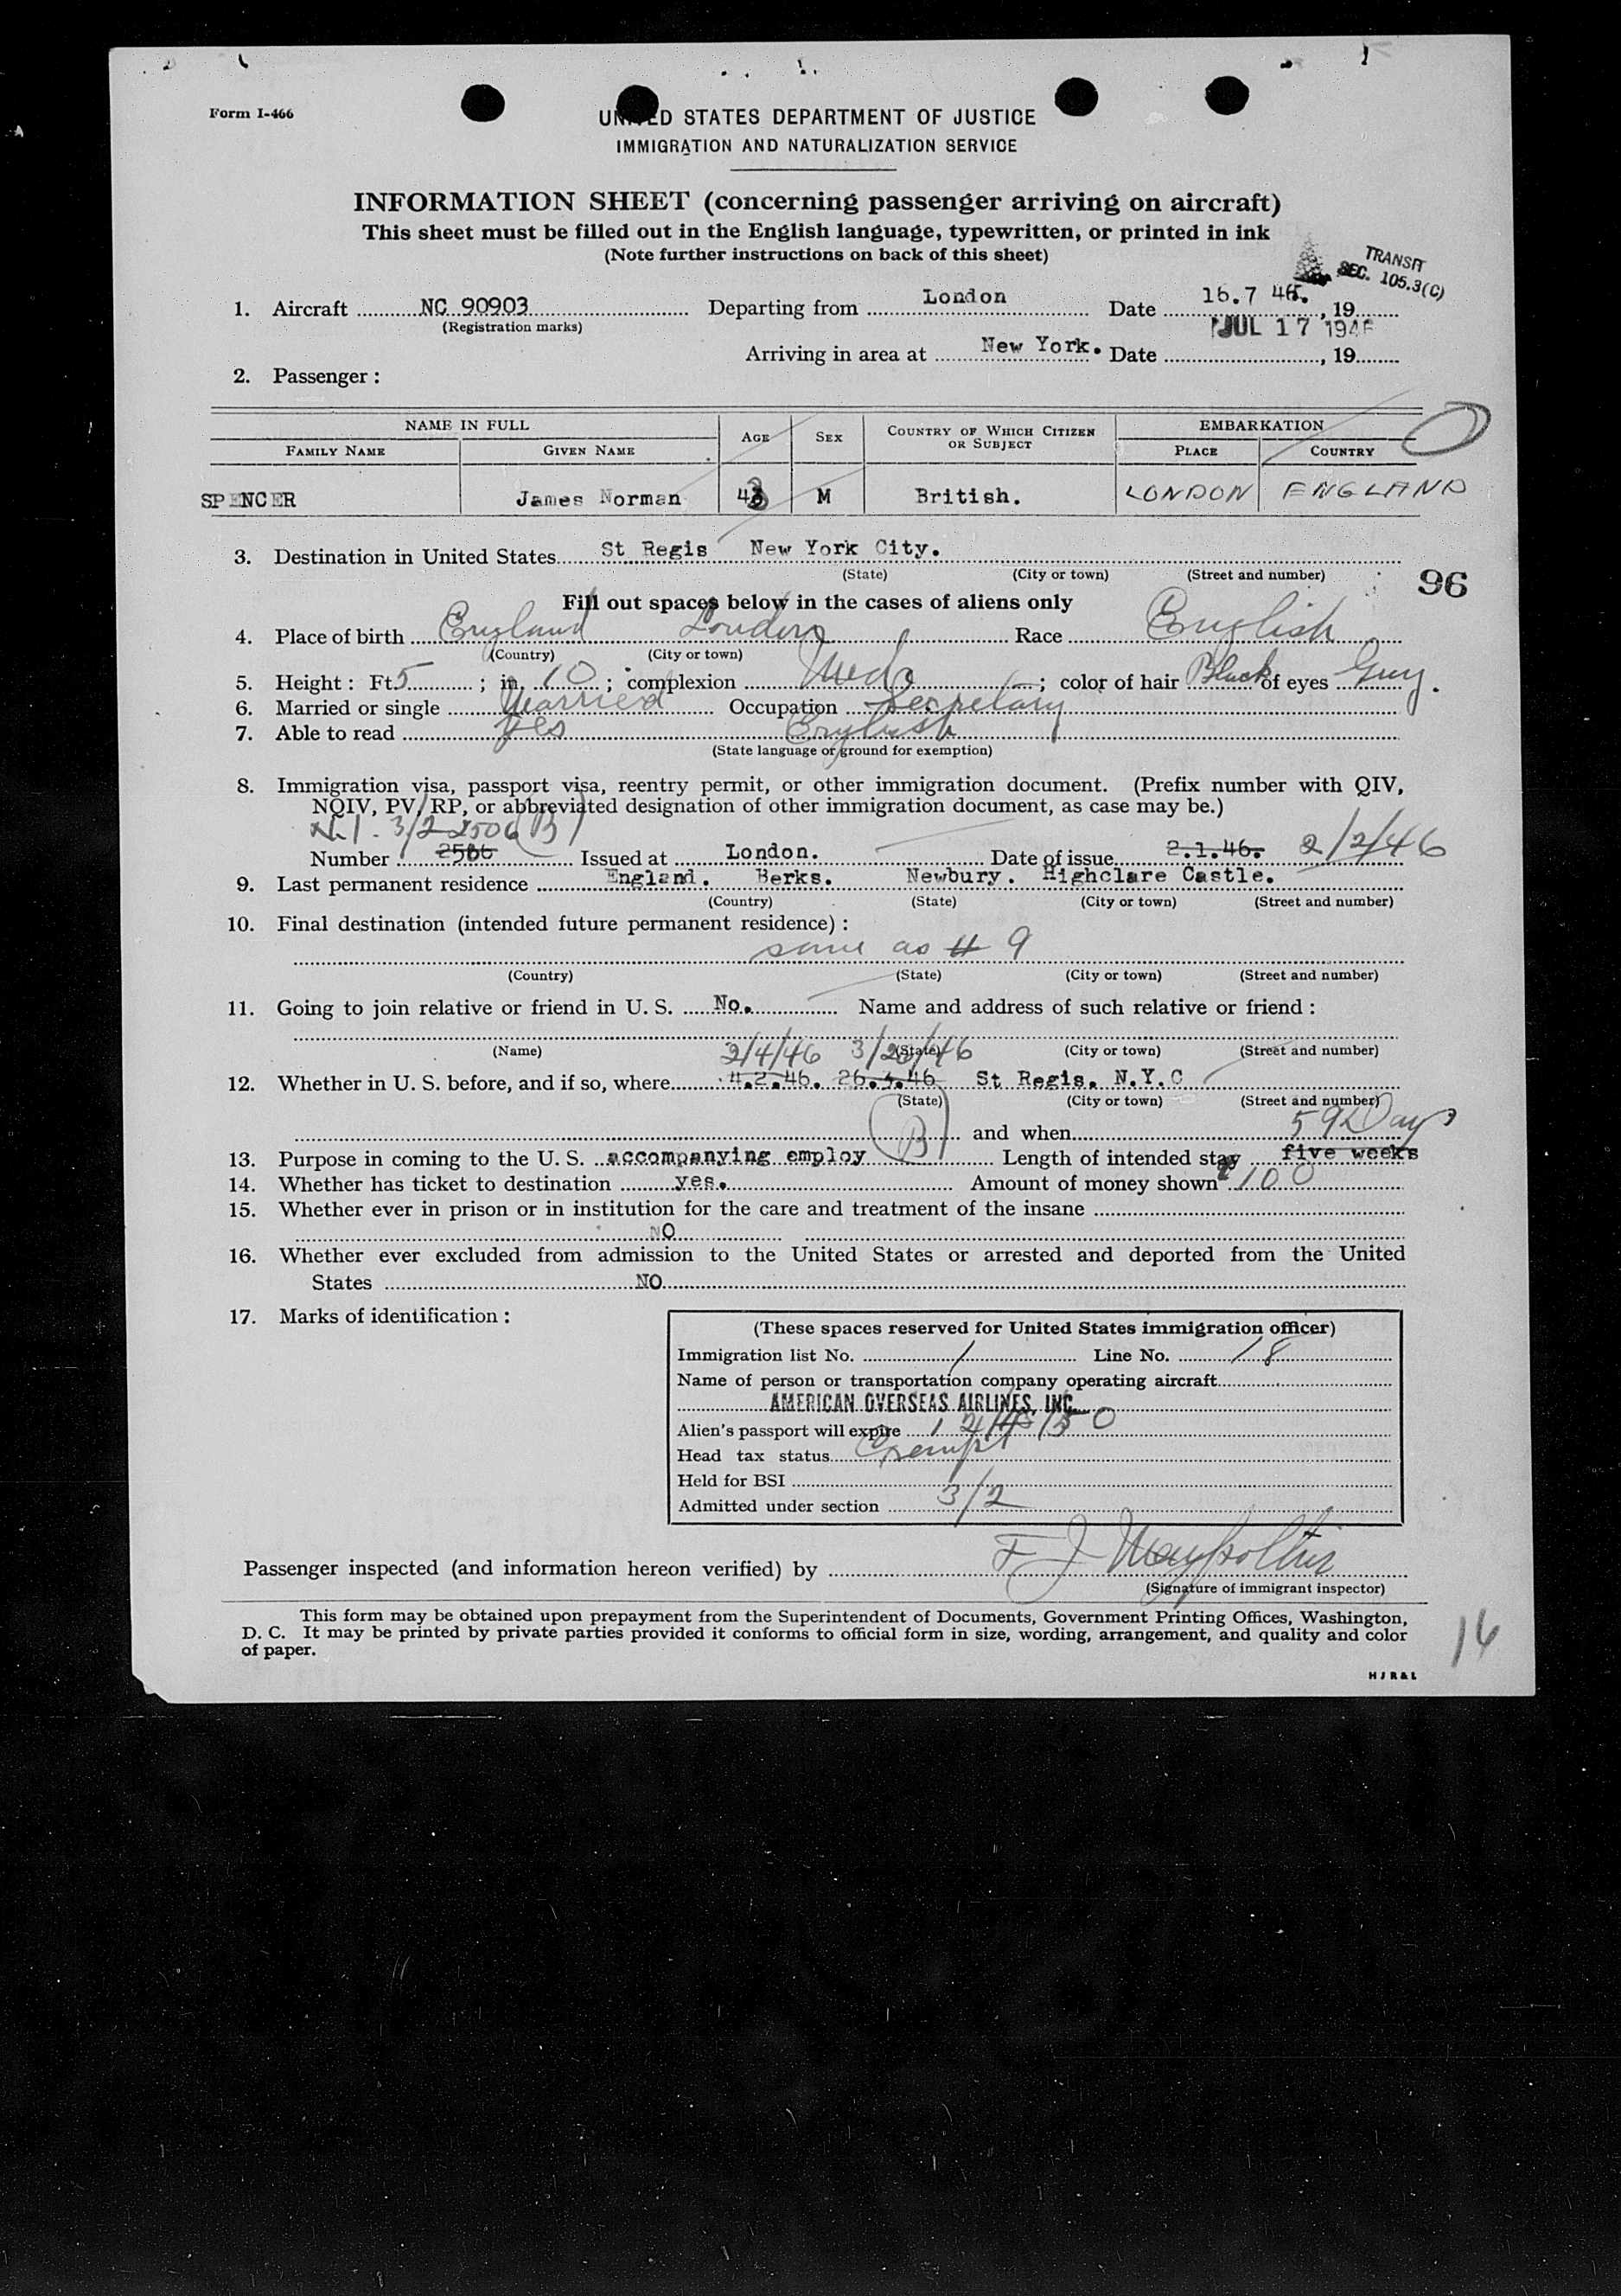 Form I-466
UNITED STATES DEPARTMENT OF JUSTICE
IMMIGRATION AND NATURALIZATION SERVICE
INFORMATION SHEET (concerning passenger arriving on aircraft)
This sheet must be filled out in the English language, typewritten, or printed in ink
(Note further instructions on back of this sheet)
TRANSIT
SEC. 105.3(C)
1. Aircraft NC 90903 Departing from London Date 16.7 46. , 19
(Registration marks) JUL 17 1946
Arriving in area at New York. Date , 19
2. Passenger :
NAME IN FULL AGE SEX COUNTRY OF WHICH CITIZEN OR SUBJECT EMBARKATION
FAMILY NAME GIVEN NAME PLACE COUNTRY
SPENCER James Norman 43 M British. LONDON ENGLAND
3. Destination in United States St Regis New York City.
(State) (City or town) (Street and number)
96
Fill out spaces below in the cases of aliens only
4. Place of birth England London Race English
(Country) (City or town)
5. Height : Ft 5 ; in. 10 ; complexion Med ; color of hair Black of eyes Grey.
6. Married or single Married Occupation Secretary
7. Able to read Yes English
(State language or ground for exemption)
8. Immigration visa, passport visa, reentry permit, or other immigration document. (Prefix number with QIV,
NQIV, PV, RP, or abbreviated designation of other immigration document, as case may be.)
3/2 2506 (B)
Number 2566 Issued at London. Date of issue 2.1.46. 2/2/46
9. Last permanent residence England. Berks. Newbury. Highclare Castle.
(Country) (State) (City or town) (Street and number)
10. Final destination (intended future permanent residence) :
same as # 9
(Country) (State) (City or town) (Street and number)
11. Going to join relative or friend in U. S. No. Name and address of such relative or friend :
(Name) (State) (City or town) (Street and number)
2/4/46 3/26/46
12. Whether in U. S. before, and if so, where 4.2.46. 26.3.46 St Regis. N.Y.C
(State) (City or town) (Street and number)
(B) and when 59 Days
13. Purpose in coming to the U. S. accompanying employ Length of intended stay five weeks
14. Whether has ticket to destination yes. Amount of money shown 100
15. Whether ever in prison or in institution for the care and treatment of the insane
NO
16. Whether ever excluded from admission to the United States or arrested and deported from the United
States NO
17. Marks of identification :
(These spaces reserved for United States immigration officer)
Immigration list No. 1 Line No. 18
Name of person or transportation company operating aircraft
AMERICAN OVERSEAS AIRLINES, INC.
Alien's passport will expire
Head tax status Exempt
Held for BSI
Admitted under section 3/2
Passenger inspected (and information hereon verified) by F J
(Signature of immigrant inspector)
This form may be obtained upon prepayment from the Superintendent of Documents, Government Printing Offices, Washington,
D. C. It may be printed by private parties provided it conforms to official form in size, wording, arrangement, and quality and color
of paper.
16
HJR&L